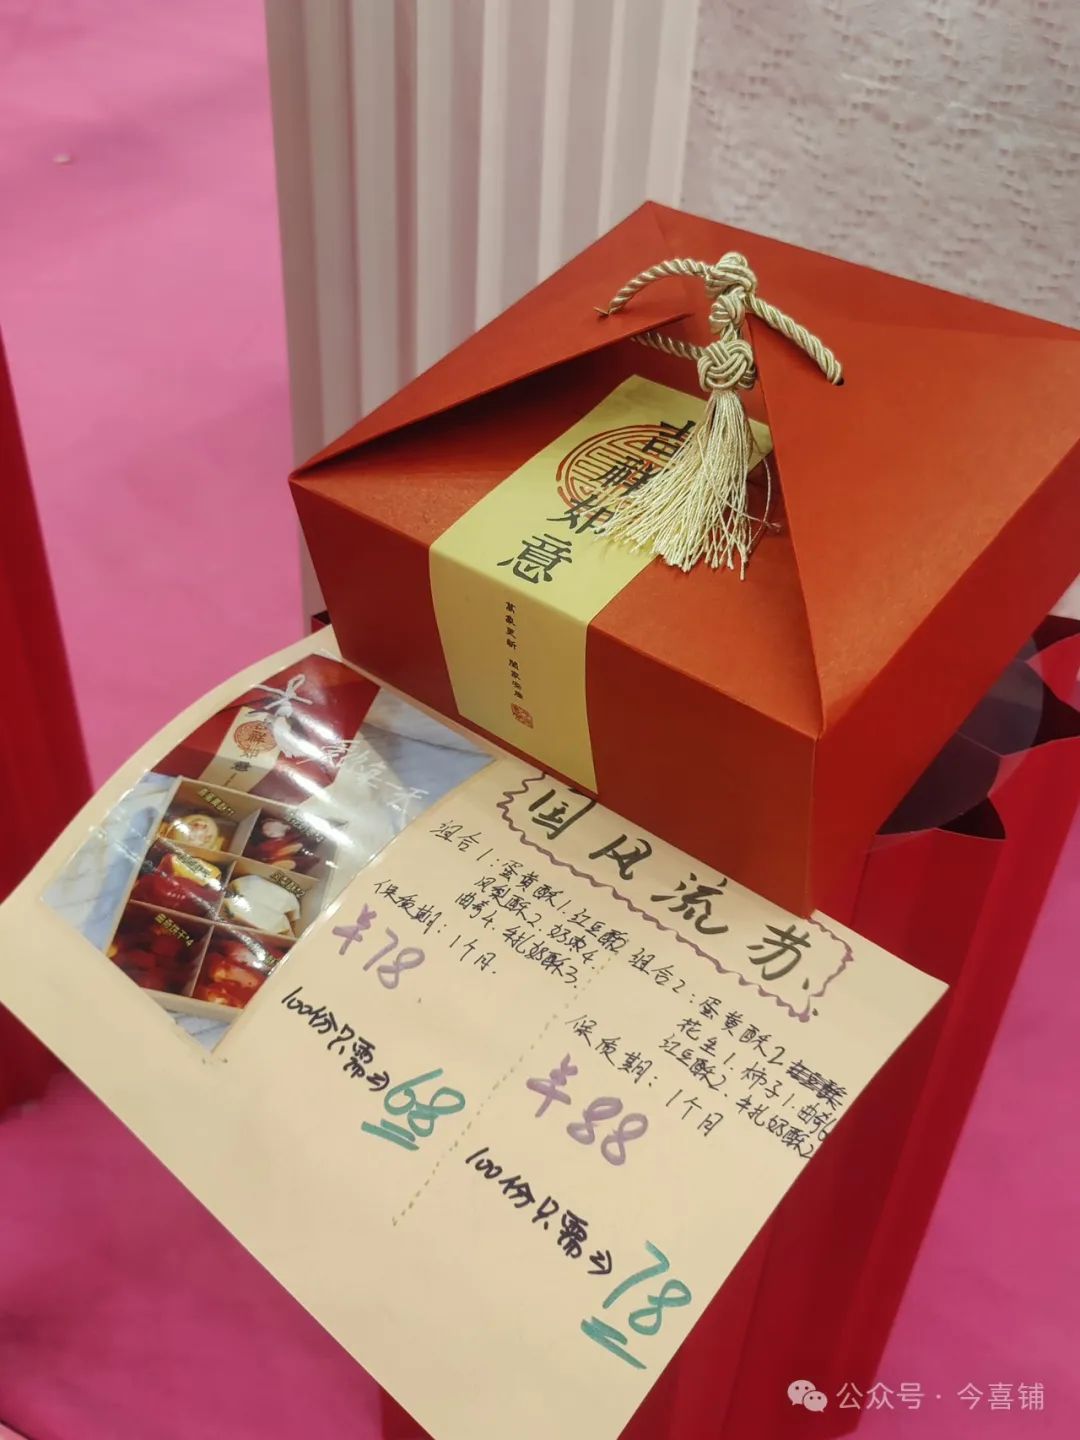 吉祥如意
国风流苏
组合1:蛋黄酥1.红豆酥2
凤梨酥2.奶枣4.
曲奇4.牛扎奶酥3.
保质期:1个月.
¥78.
100份只需⇒68
组合2:蛋黄酥2
花生1.柿子1.曲奇6
红豆酥2.牛扎奶酥2
保质期:1个月
¥88
100份只需⇒78
祥如意
曲奇饼干*4
公众号·今喜铺